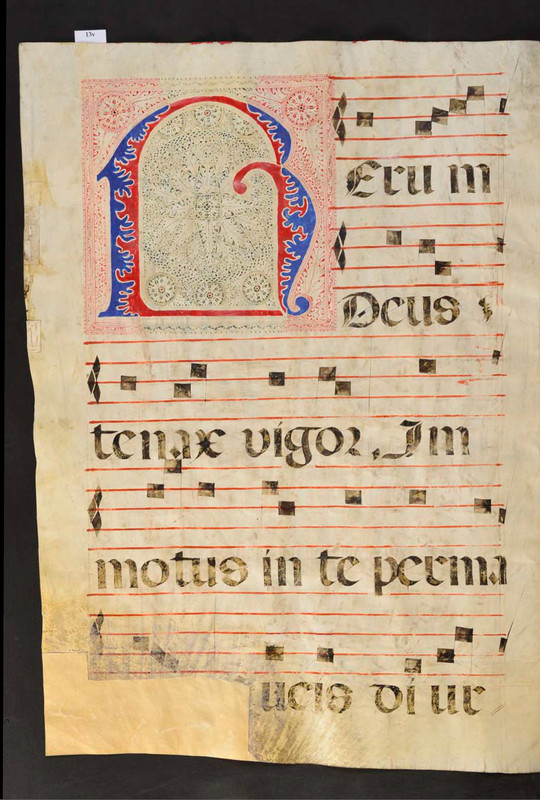 13v
REru m
Deus
tenax vigor, Im
motus in te perma
ucis diur